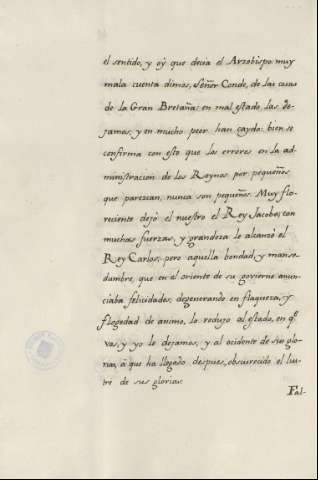 el sentido, y oý que decia el Arzobispo muy
mala cuenta dimos, Señor Conde, de las cosas
de la Gran Bretaña: en mal estado las de-
jamos, y en mucho peor han caydo: bien se
confirma con esto que los errores en la ad-
ministracion de los Reynos por pequeños
que parezcan, nunca son pequeños. Muy flo-
reciente dejó el nuestro el Rey Jacobo; con
muchas fuerzas, y grandeza le alcanzó el
Rey Carlos; pero aquella bondad, y manse-
dumbre, que en el oriente de su govierno anun-
ciaba felicidades, degenerando en flaqueza, y
flogedad de animo, lo redujo al estado, en q.e
vos, y yo le dejamos, y al ocidente de sus glo-
rias, á que ha llegado despues, obscurecido el lus-
tre de sus glorias.
Fal-